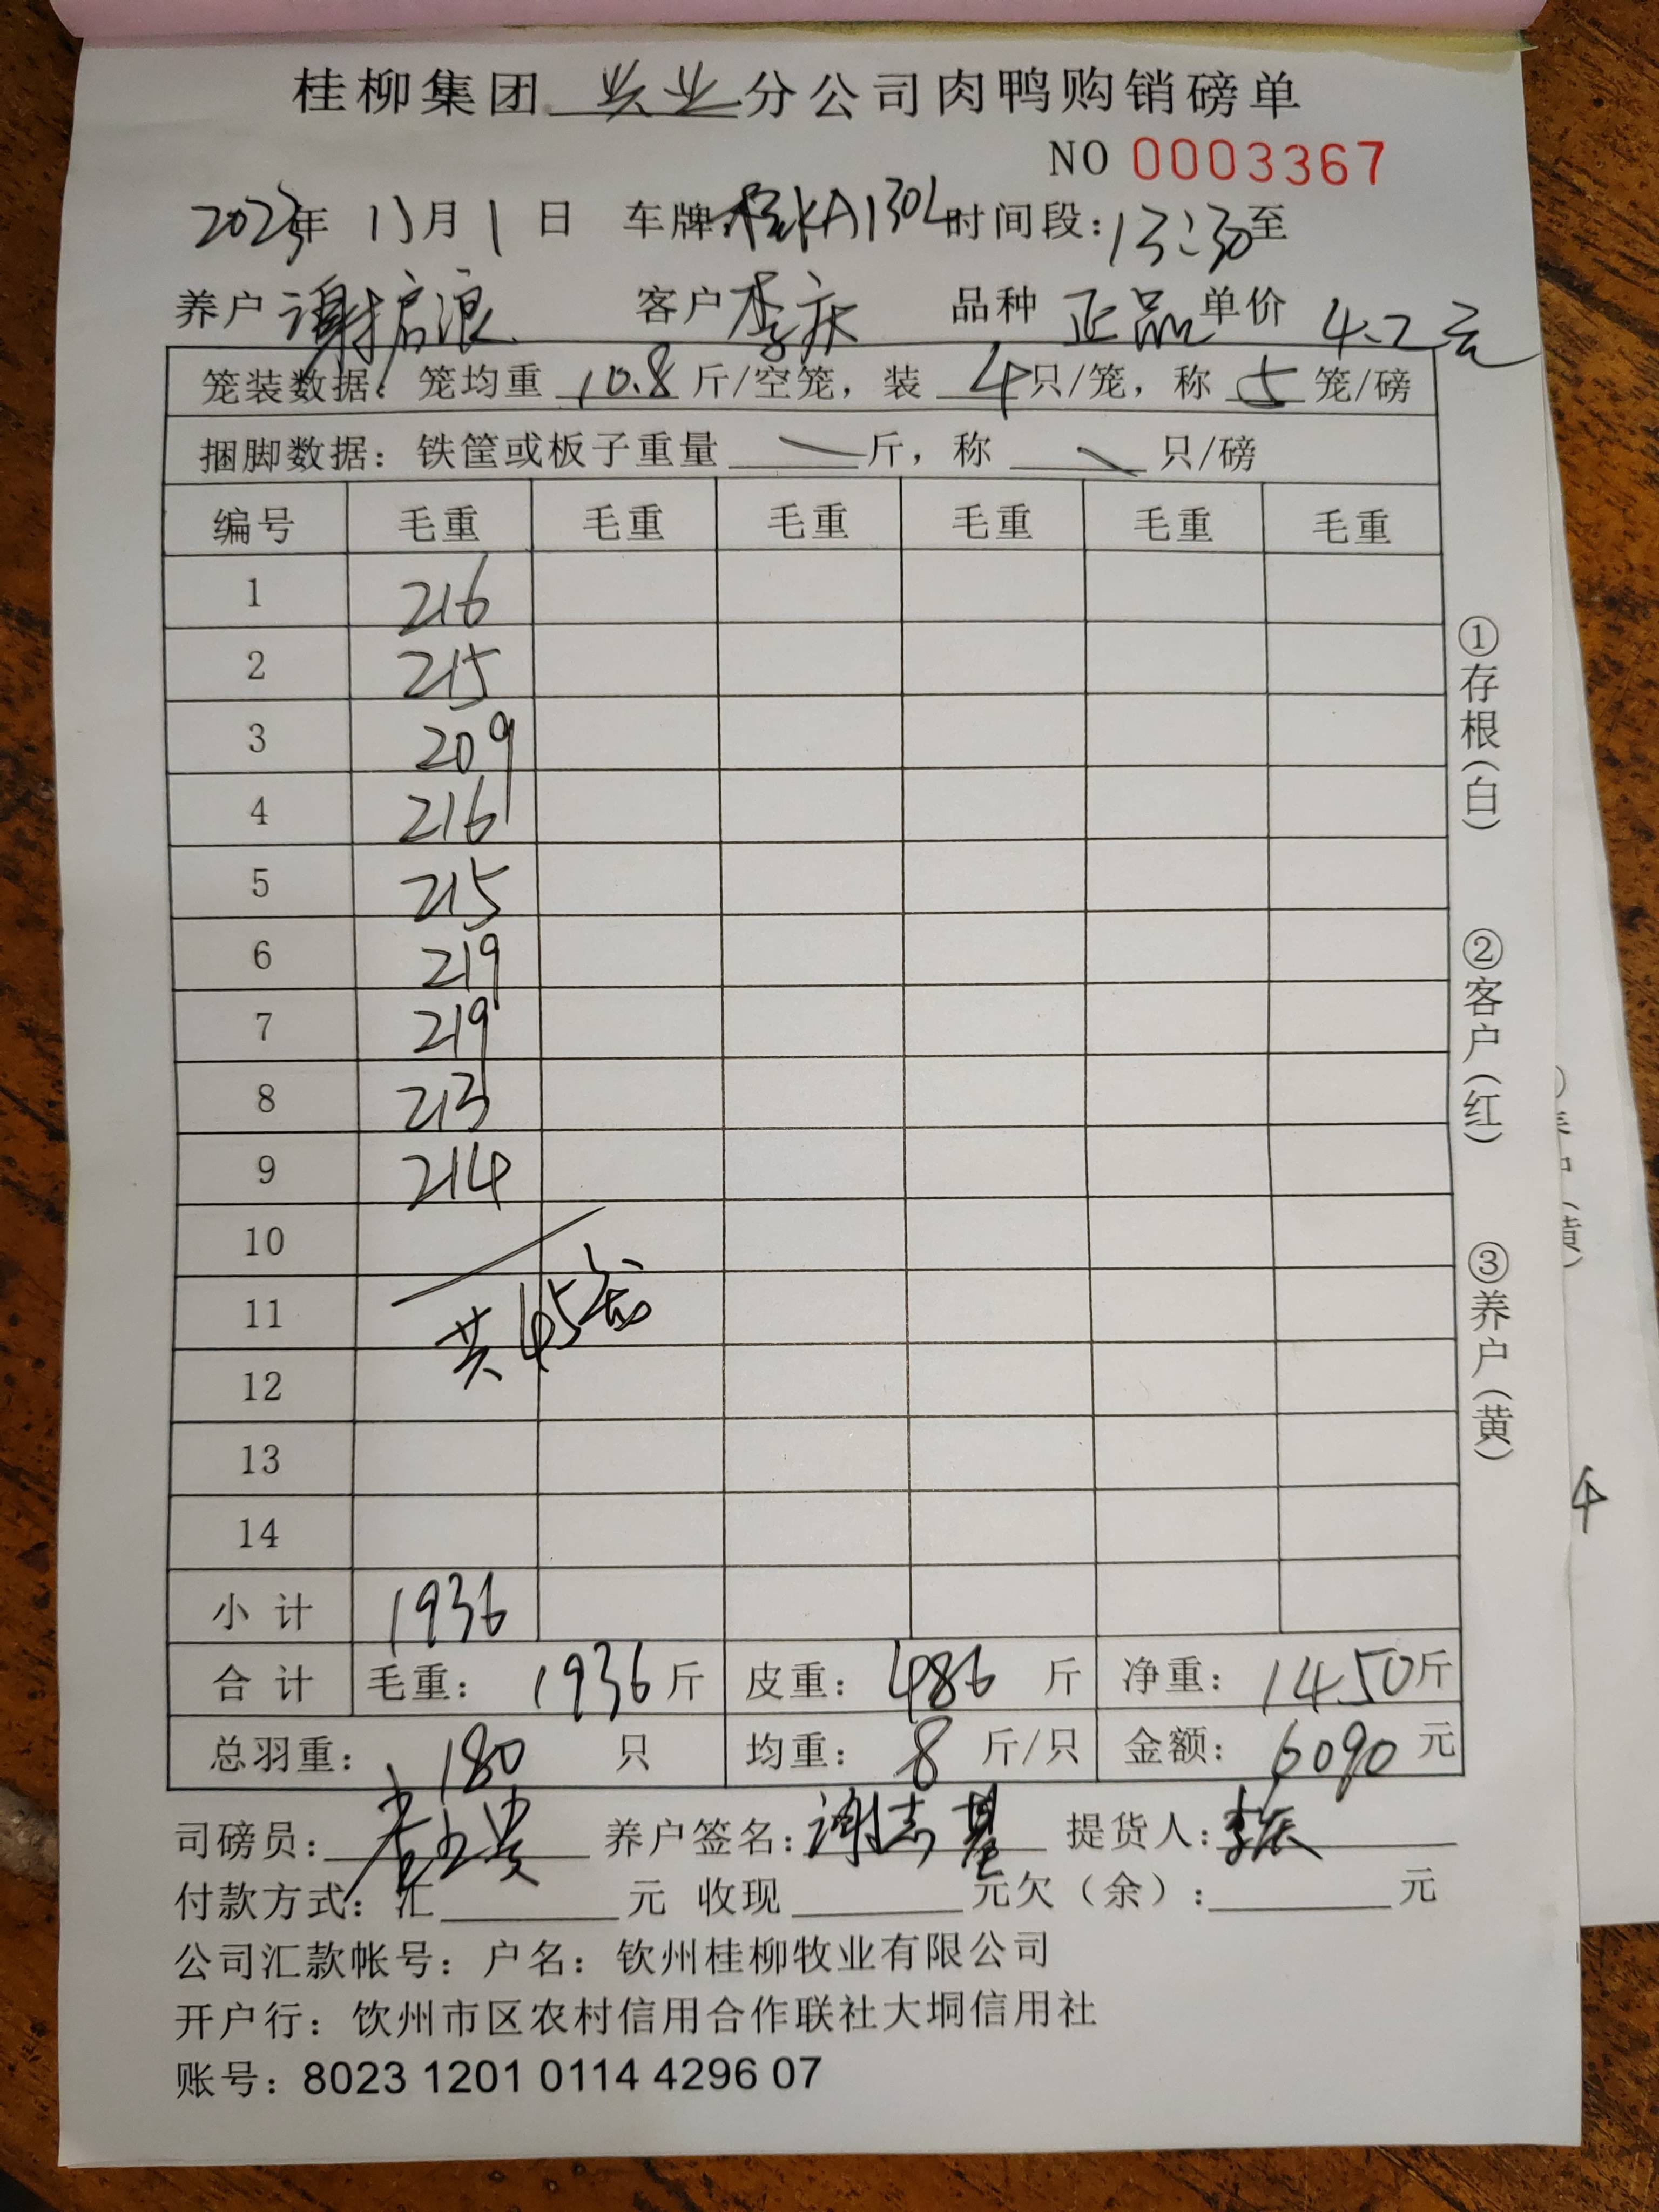 桂柳集团 兴业 分公司肉鸭购销磅单
NO 0003367
2023年 11月 1 日 车牌:桂KA130L 时间段:13:30至
养户 谢启浪 客户 李庆 品种 正品 单价 4.2元
笼装数据:笼均重 10.8 斤/空笼,装 4 只/笼,称 5 笼/磅
捆脚数据:铁筐或板子重量 斤,称 只/磅
编号 毛重 毛重 毛重 毛重 毛重 毛重
1 216
2 215
3 209
4 216
5 215
6 219
7 219
8 213
9 214
10
11
共45笼
12
13
14
小计 1936
合计 毛重: 1936 斤 皮重: 486 斤 净重: 1450斤
总羽重: 180 只 均重: 8 斤/只 金额: 6090 元
①存根(白)
②客户(红)
③养户(黄)
司磅员: 养户签名:谢志基 提货人:
付款方式:汇 元 收现 元欠(余): 元
公司汇款帐号:户名:钦州桂柳牧业有限公司
开户行:饮州市区农村信用合作联社大垌信用社
账号:8023 1201 0114 4296 07